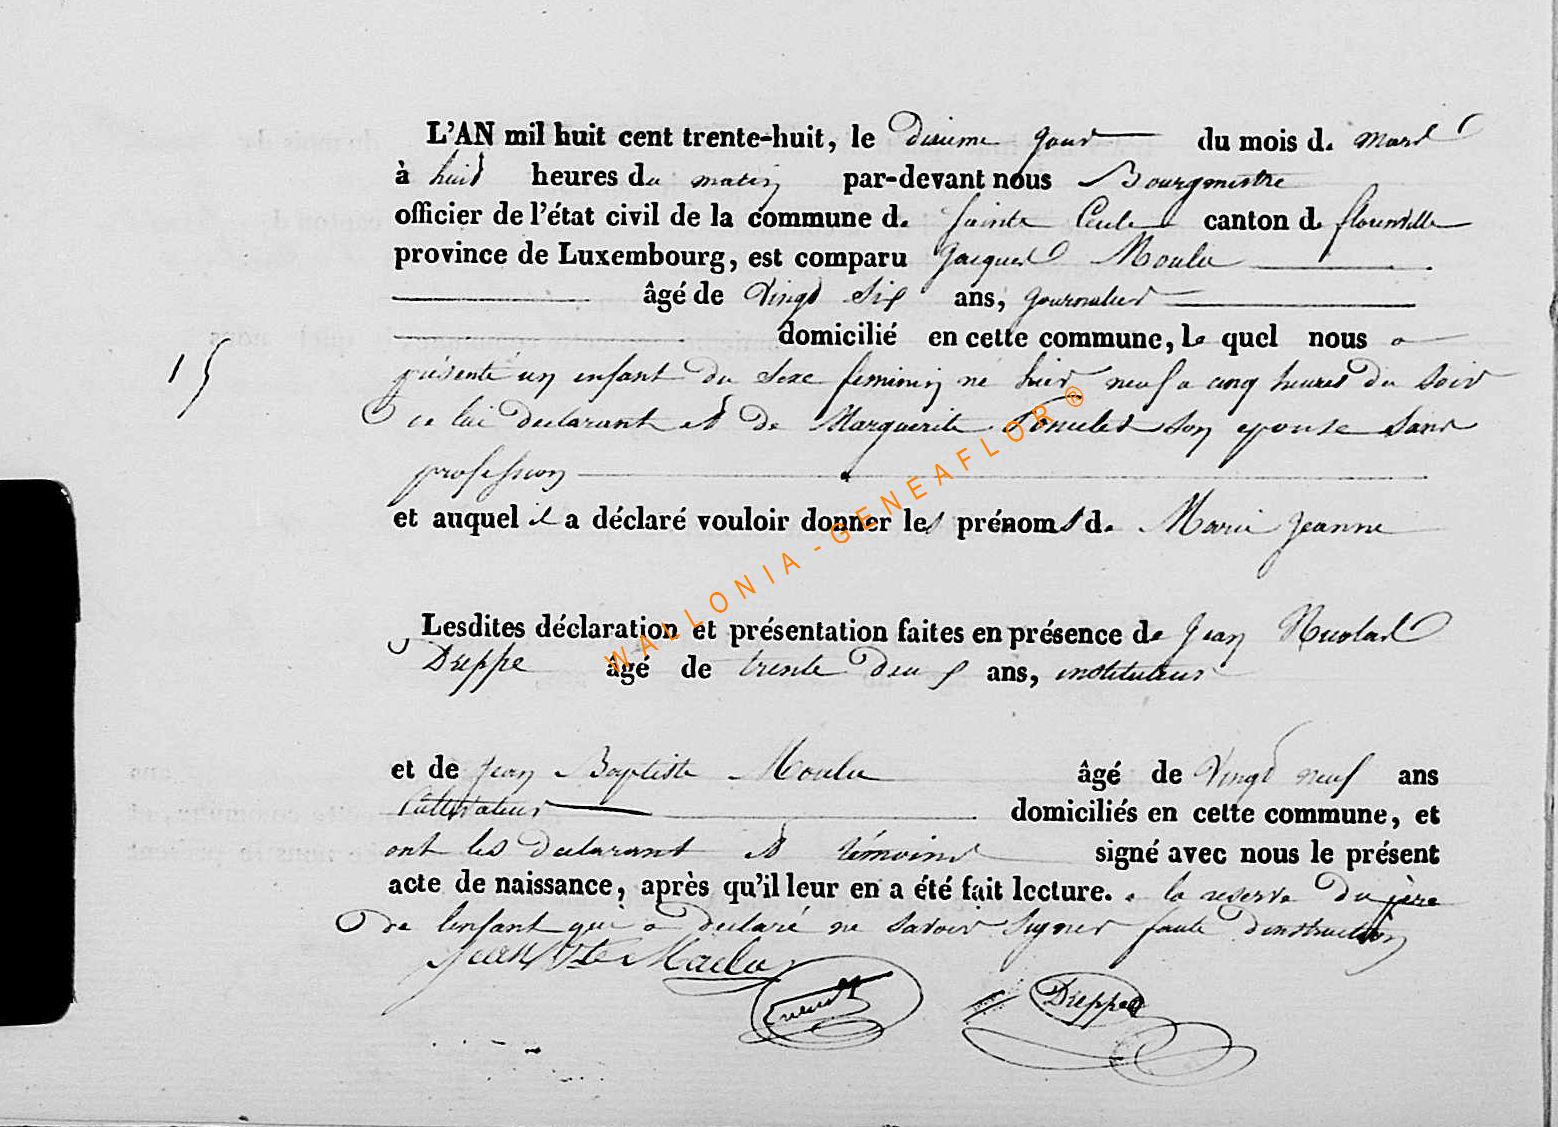 L'AN mil huit cent trente-huit, le dixieme jour du mois de mars
à huit heures du matin par-devant nous Bourgmestre
officier de l'état civil de la commune de Sainte Cecile canton de florenville
province de Luxembourg, est comparu Jacques Moula
âgé de vingt six ans, journalier
domicilié en cette commune, le quel nous a
15
présenté un enfant du sexe feminin né hier neuf a cinq heures du soir
de lui declarant et de Marguerite son epouse sans
profession
et auquel il a déclaré vouloir donner les prénoms de Marie Jeanne
Lesdites déclaration et présentation faites en présence de Jean Nicolas
Dreppe âgé de trente deux ans, instituteur
et de Jean Baptiste Moula âgé de vingt neuf ans
Cultivateur domiciliés en cette commune, et
ont les declarant et témoins signé avec nous le présent
acte de naissance, après qu'il leur en a été fait lecture. a la reserve du père
de lenfant qui a declaré ne savoir signer faute dinstruction
Jean Bte Moula
Dreppe
WALLONIA-GENEAFLOR®